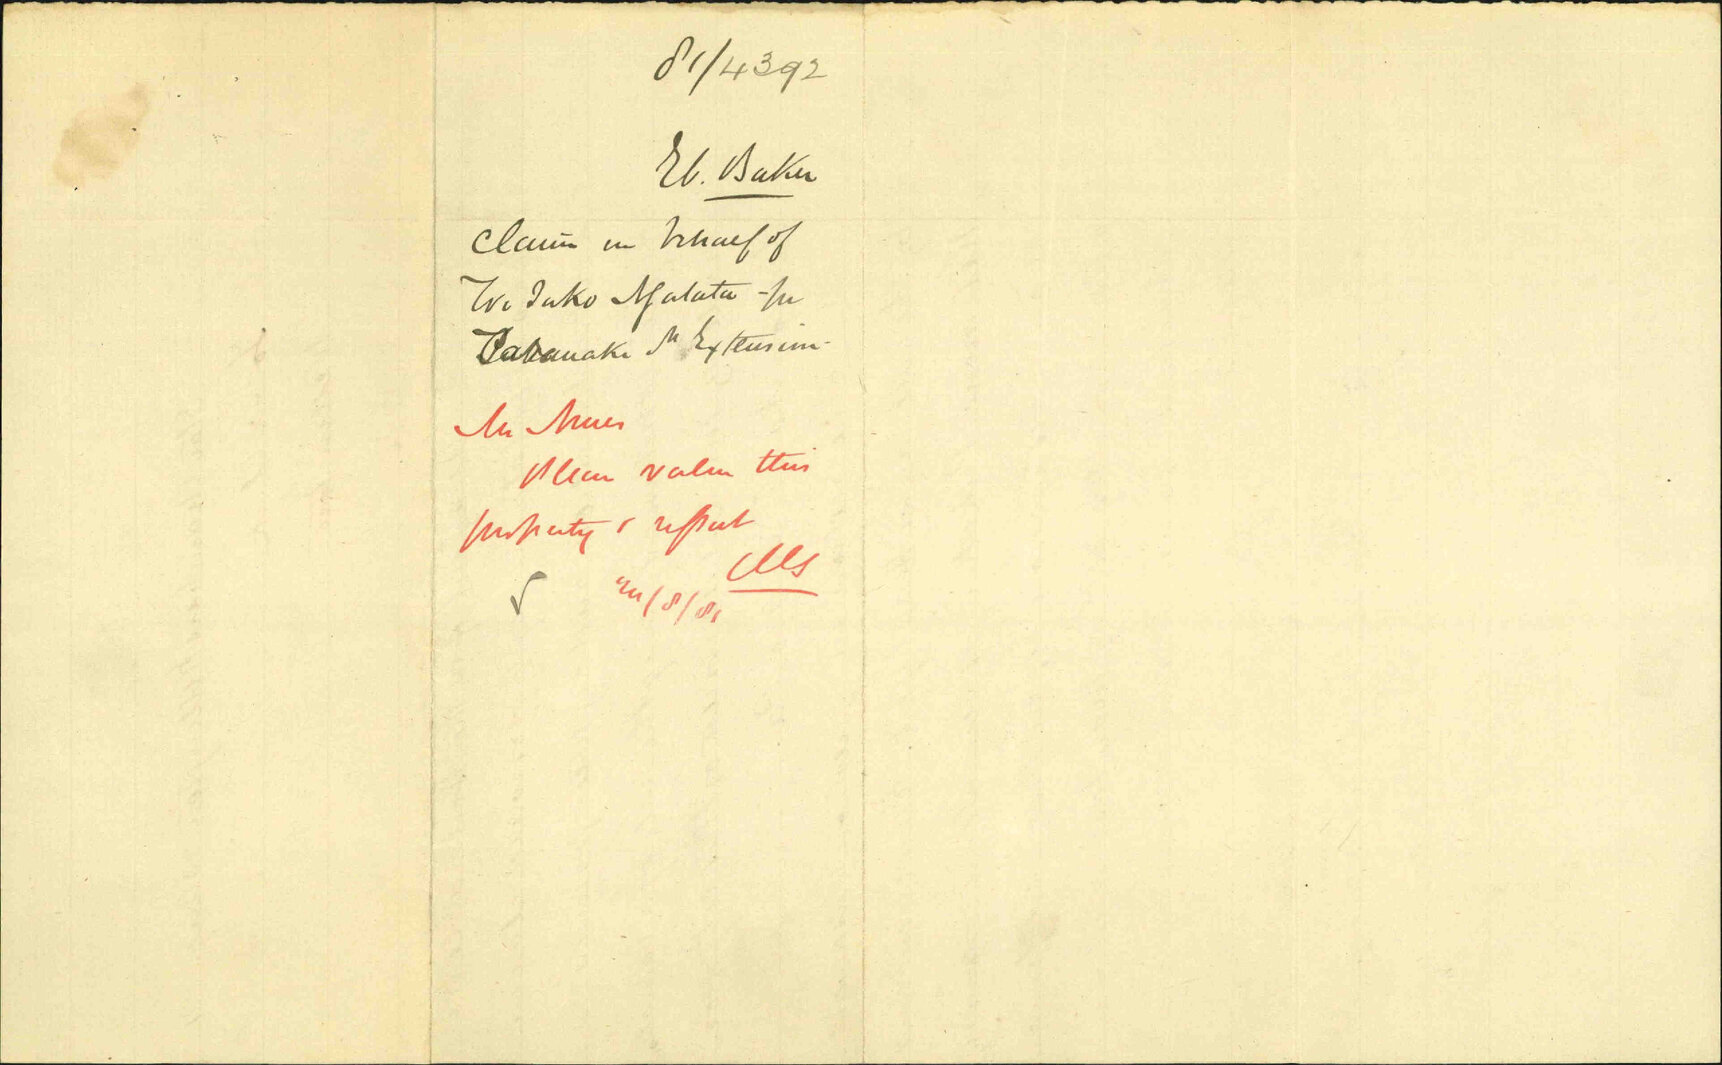 81/4392
Eb. Baker
Claim on behalf of
Wi Tako Ngatata for
Taranaki St Extension
Mr
Please value this
property & report
/8/81